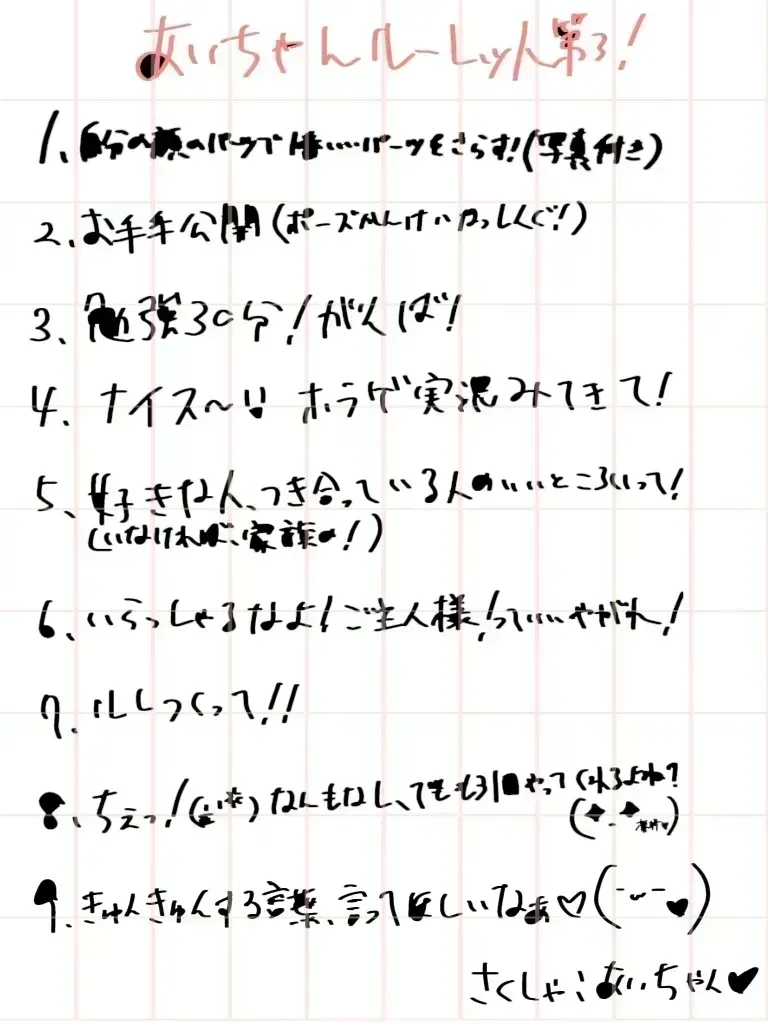 あいちゃんルーレット第3!
1、自分の顔のパーツで1番いいパーツをさらす!(写真付き)
2、お手手公開(ポーズかんけいなっしんぐ!)
3、勉強30分!がんば!
4、ナイス〜!! ホラゲ実況みてきて!
5、好きな人、つき合っている人のいいところいって!
(いなければ、家族の!)
6、いらっしゃるなよ!ご主人様!っていいやがれ!
7、ルしつくって!!
8、ちぇっ!なんもなし、でももう1回やってくれるよね?
9、きゅんきゅんする言葉、言ってほしいなぁ♡(˘⌣˘♥)
さくしゃ:あいちゃん♥